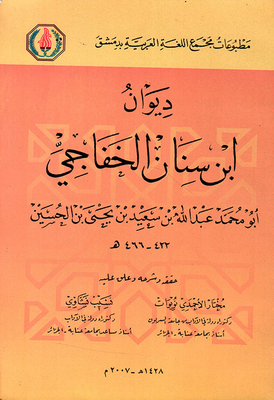 مطبوعات مجمع اللغة العربية بدمشق
ديوان
ابن سنان الخفاجي
أبو محمد عبد الله بن سعيد بن يحيى بن الحسين
٤٢٣ - ٤٦٦ هـ
حققه وشرحه وعلق عليه
مختار الأحمدي نويوات
نسيب نشاوي
دكتوراه دولة في الآداب من جامعة السوربون
دكتوراه دولة في الآداب
أستاذ بجامعة عنابة - الجزائر
أستاذ مساعد بجامعة عنابة - الجزائر
١٤٢٨ هـ - ٢٠٠٧ م